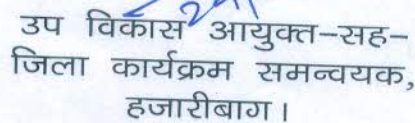 उप विकास आयुक्त-सह-
जिला कार्यक्रम समन्वयक,
हजारीबाग।